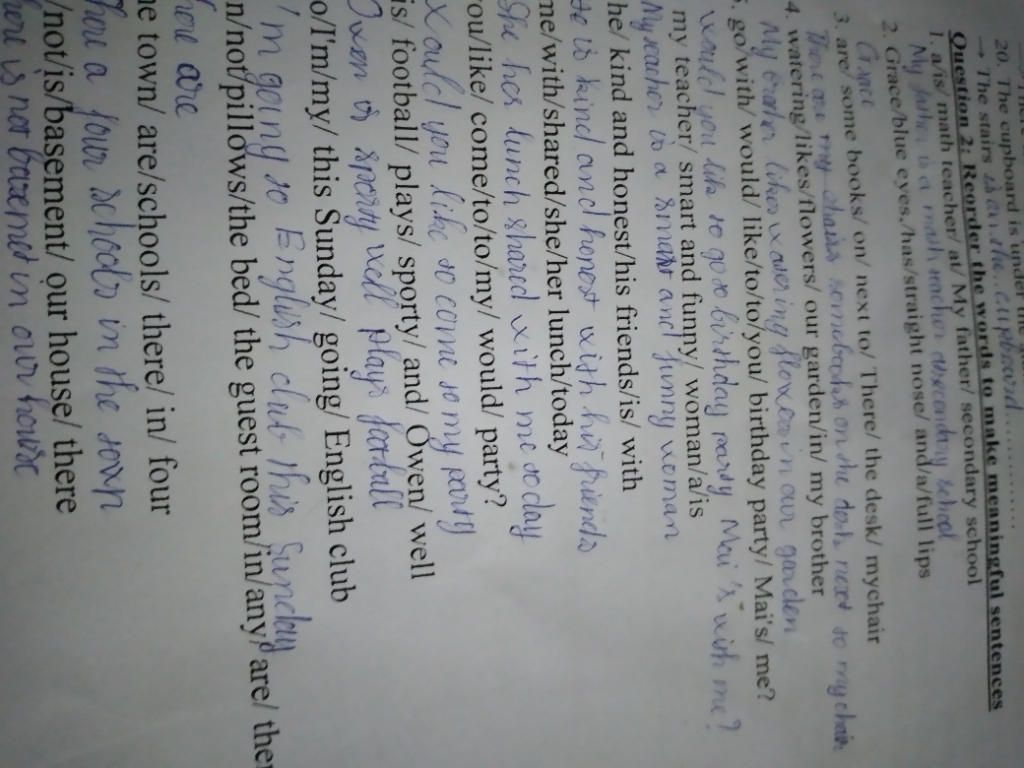 20. The cupboard is under the
→ The stairs is on the cupboard..........
Question 2: Reorder the words to make meaningful sentences
1. a/is/ math teacher/ at/ My father/ secondary school
My father is a math teacher secondary school
2. Grace/blue eyes./has/straight nose/ and/a/full lips
Grace
3. are/ some books/ on/ next to/ There/ the desk/ mychair
There are chairs somebooks on the next to my chair
4. watering/likes/flowers/ our garden/in/ my brother
My brother likes watering in our garden
5. go/with/ would/ like/to/to/you/ birthday party/ Mai's/ me?
would you like to go to birthday party Mai's with me?
my teacher/ smart and funny/ woman/a/is
My teacher is a smart and funny woman
he/ kind and honest/his friends/is/ with
He is kind and honest with his friends
me/with/shared/she/her lunch/today
She her lunch shared with me today
you/like/ come/to/to/my/ would/ party?
Would you like to come to my party
is/ football/ plays/ sporty/ and/ Owen/ well
Owen is sporty well plays football
o/I'm/my/ this Sunday/ going/ English club
I'm going to English club this Sunday
n/not/pillows/the bed/ the guest room/in/any/ are/ ther
here are
he town/ are/schools/ there/ in/ four
here a four schools in the town
/not/is/basement/ our house/ there
here is not in our house